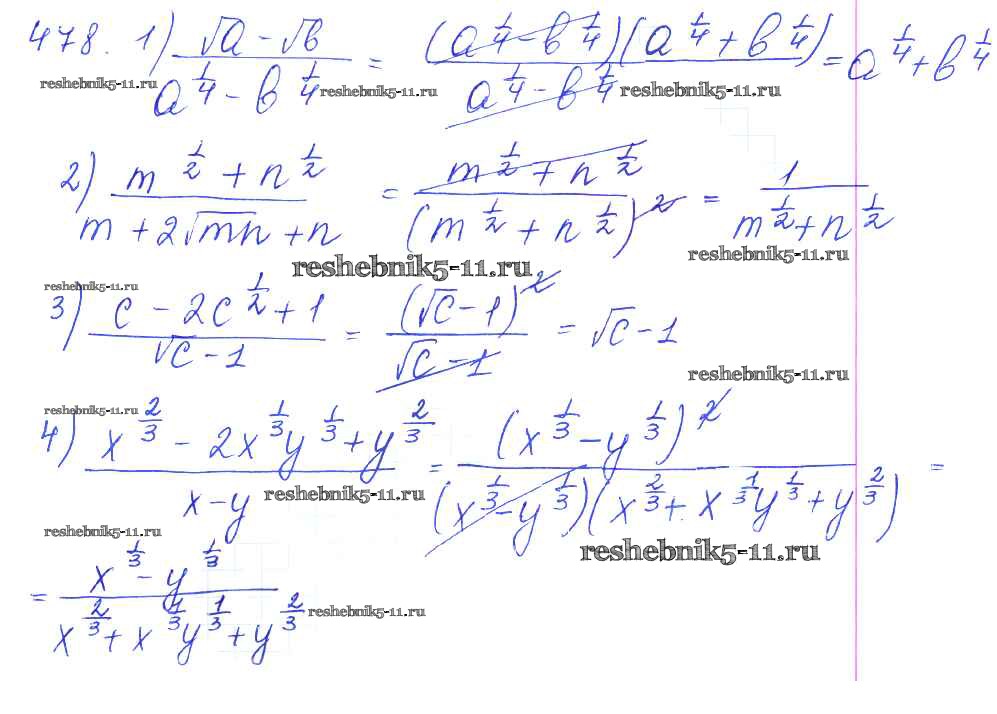 478. 1) (√a - √b)/(a^(1/4) - b^(1/4)) = ((a^(1/4) - b^(1/4))(a^(1/4) + b^(1/4)))/(a^(1/4) - b^(1/4)) = a^(1/4) + b^(1/4)
reshebnik5-11.ru reshebnik5-11.ru reshebnik5-11.ru
2) (m^(1/2) + n^(1/2))/(m + 2√mn + n) = (m^(1/2) + n^(1/2))/(m^(1/2) + n^(1/2))^2 = 1/(m^(1/2) + n^(1/2))
reshebnik5-11.ru
reshebnik5-11.ru
reshebnik5-11.ru
3) (c - 2c^(1/2) + 1)/(√c - 1) = (√c - 1)^2/(√c - 1) = √c - 1
reshebnik5-11.ru
reshebnik5-11.ru
4) (x^(2/3) - 2x^(1/3)y^(1/3) + y^(2/3))/(x - y) = (x^(1/3) - y^(1/3))^2/((x^(1/3) - y^(1/3))(x^(2/3) + x^(1/3)y^(1/3) + y^(2/3))) =
reshebnik5-11.ru
reshebnik5-11.ru
reshebnik5-11.ru
= (x^(1/3) - y^(1/3))/(x^(2/3) + x^(1/3)y^(1/3) + y^(2/3))
reshebnik5-11.ru